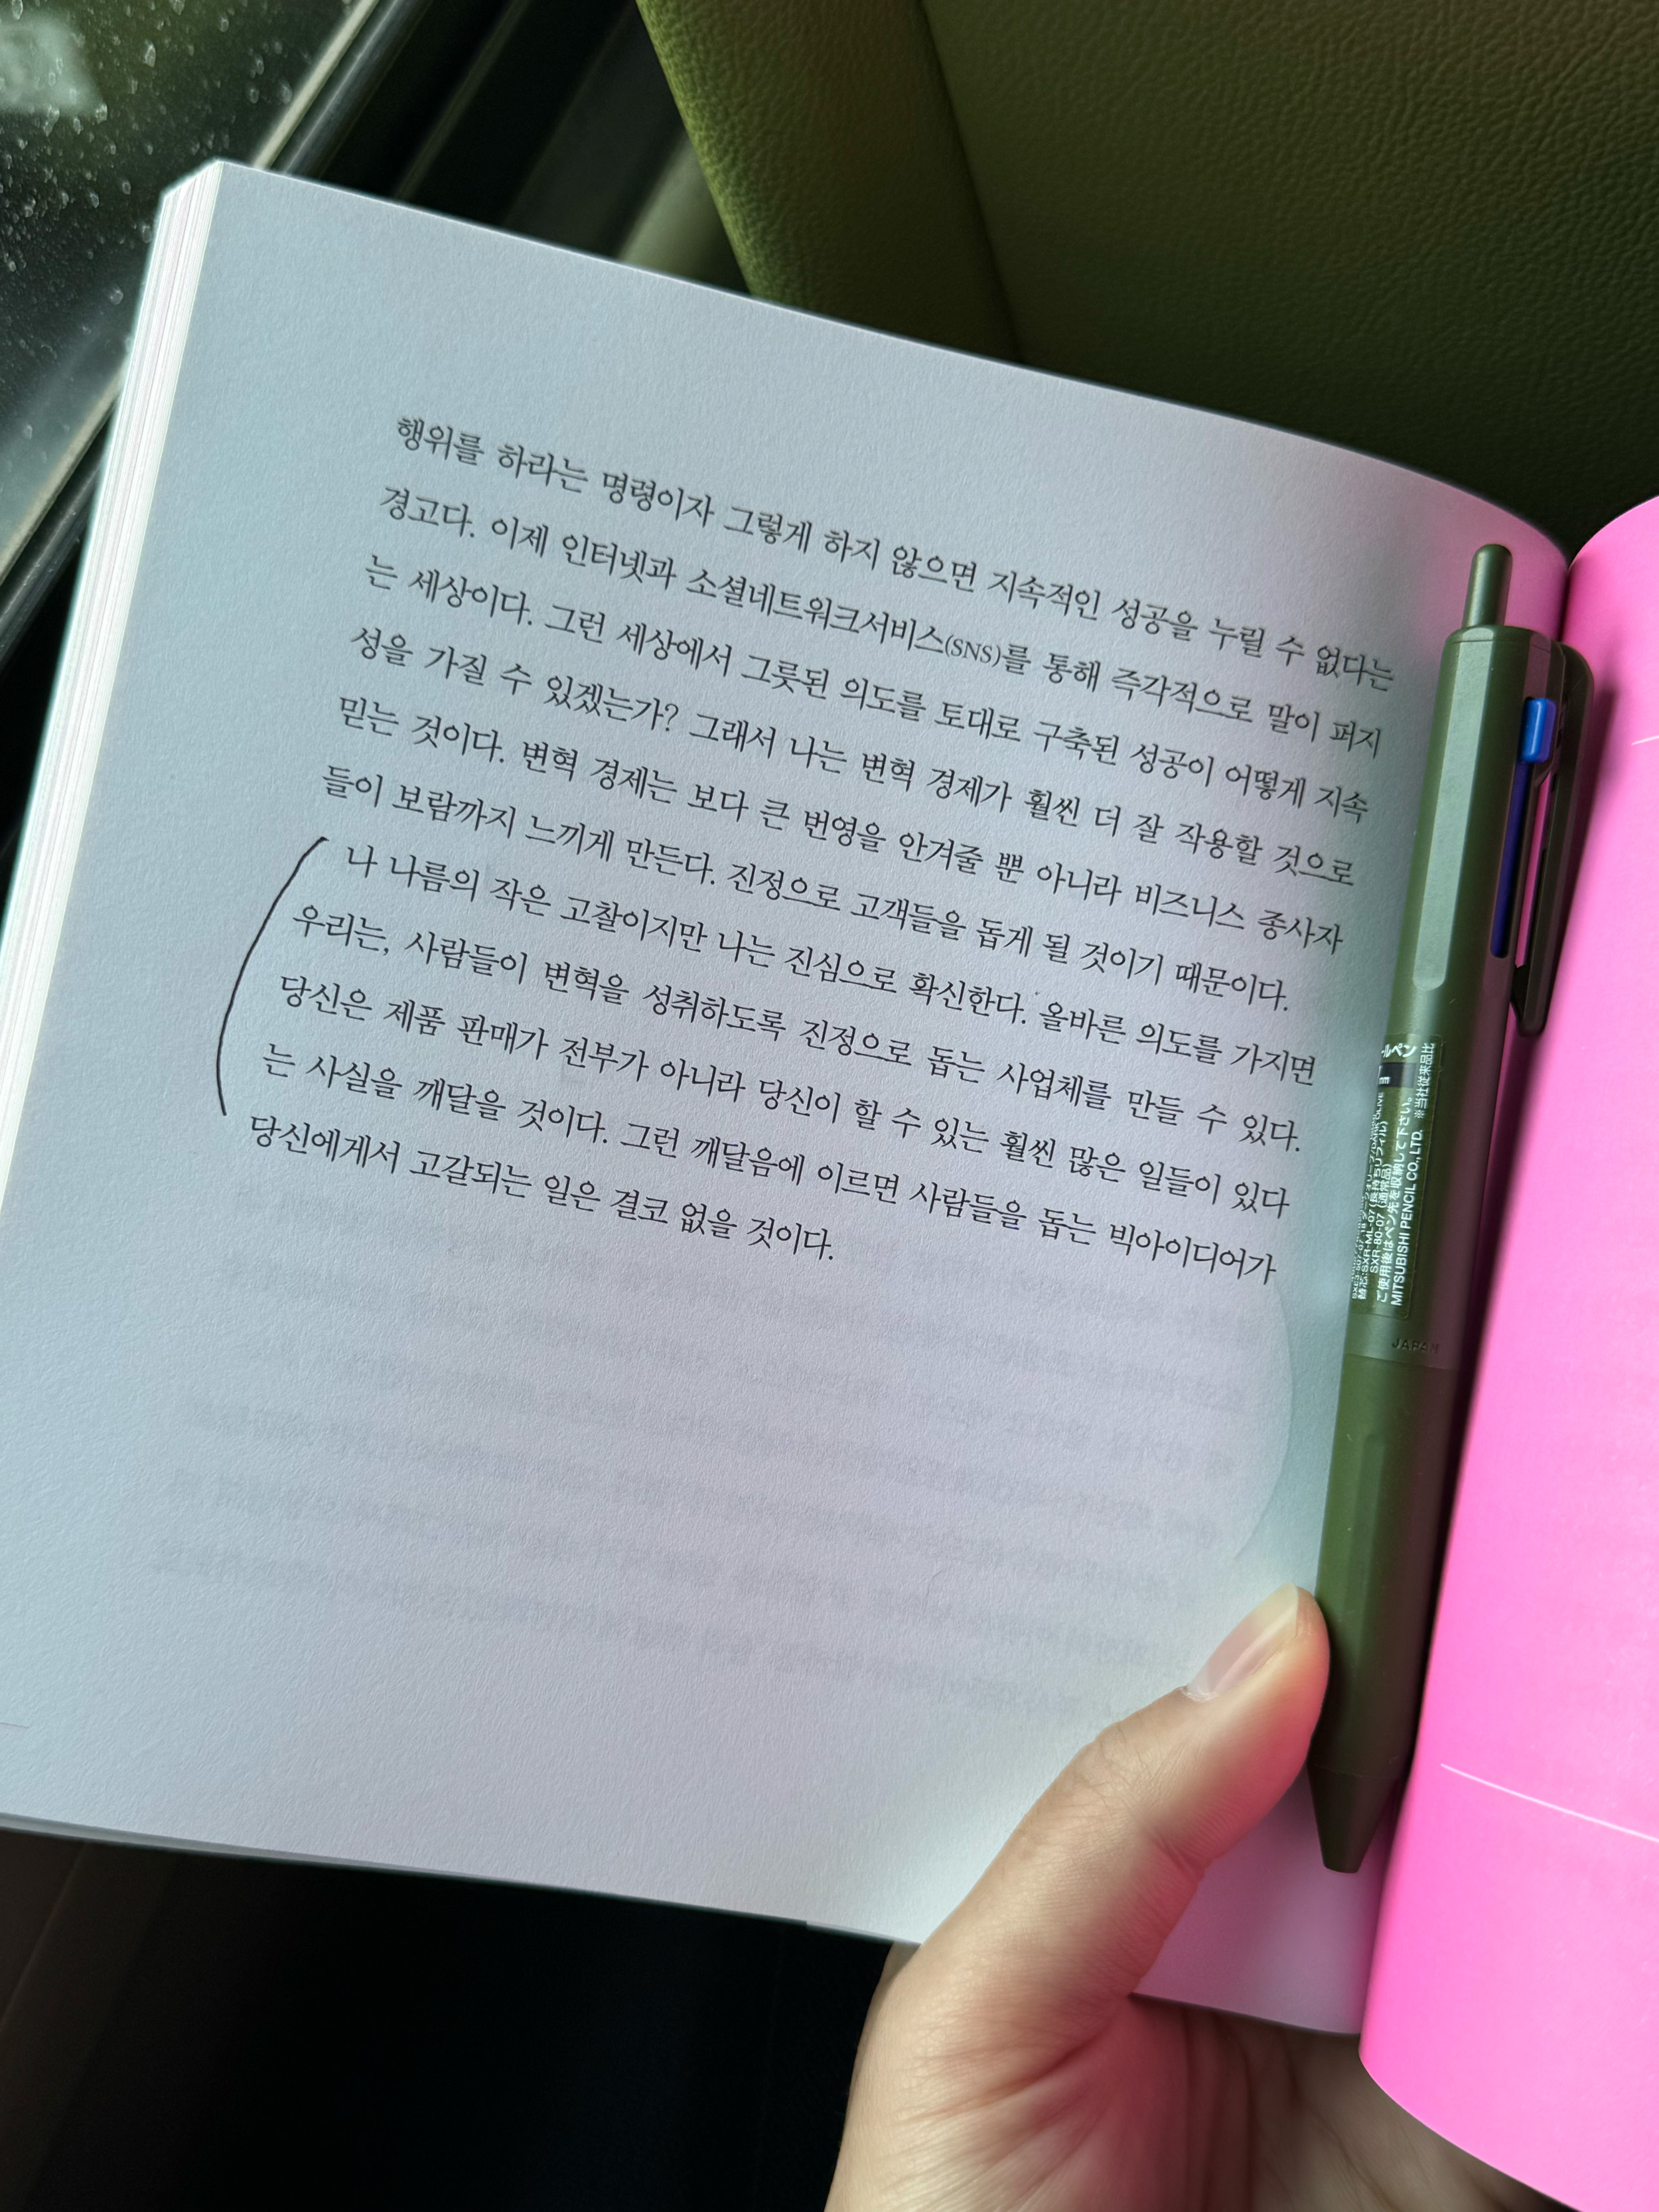 행위를 하라는 명령이자 그렇게 하지 않으면 지속적인 성공을 누릴 수 없다는
경고다. 이제 인터넷과 소셜네트워크서비스(SNS)를 통해 즉각적으로 말이 퍼지
는 세상이다. 그런 세상에서 그릇된 의도를 토대로 구축된 성공이 어떻게 지속
성을 가질 수 있겠는가? 그래서 나는 변혁 경제가 훨씬 더 잘 작용할 것으로
믿는 것이다. 변혁 경제는 보다 큰 번영을 안겨줄 뿐 아니라 비즈니스 종사자
들이 보람까지 느끼게 만든다. 진정으로 고객들을 돕게 될 것이기 때문이다.
나 나름의 작은 고찰이지만 나는 진심으로 확신한다. 올바른 의도를 가지면
우리는, 사람들이 변혁을 성취하도록 진정으로 돕는 사업체를 만들 수 있다.
당신은 제품 판매가 전부가 아니라 당신이 할 수 있는 훨씬 많은 일들이 있다
는 사실을 깨달을 것이다. 그런 깨달음에 이르면 사람들을 돕는 빅아이디어가
당신에게서 고갈되는 일은 결코 없을 것이다.
ールペン
※当社従来品比
替芯:SXR-ML-07(長持ちリフィル)
SXR-80-07 (通常品)
ご使用後はペン先を収納して下さい。
MITSUBISHI PENCIL CO., LTD.
JAPAN